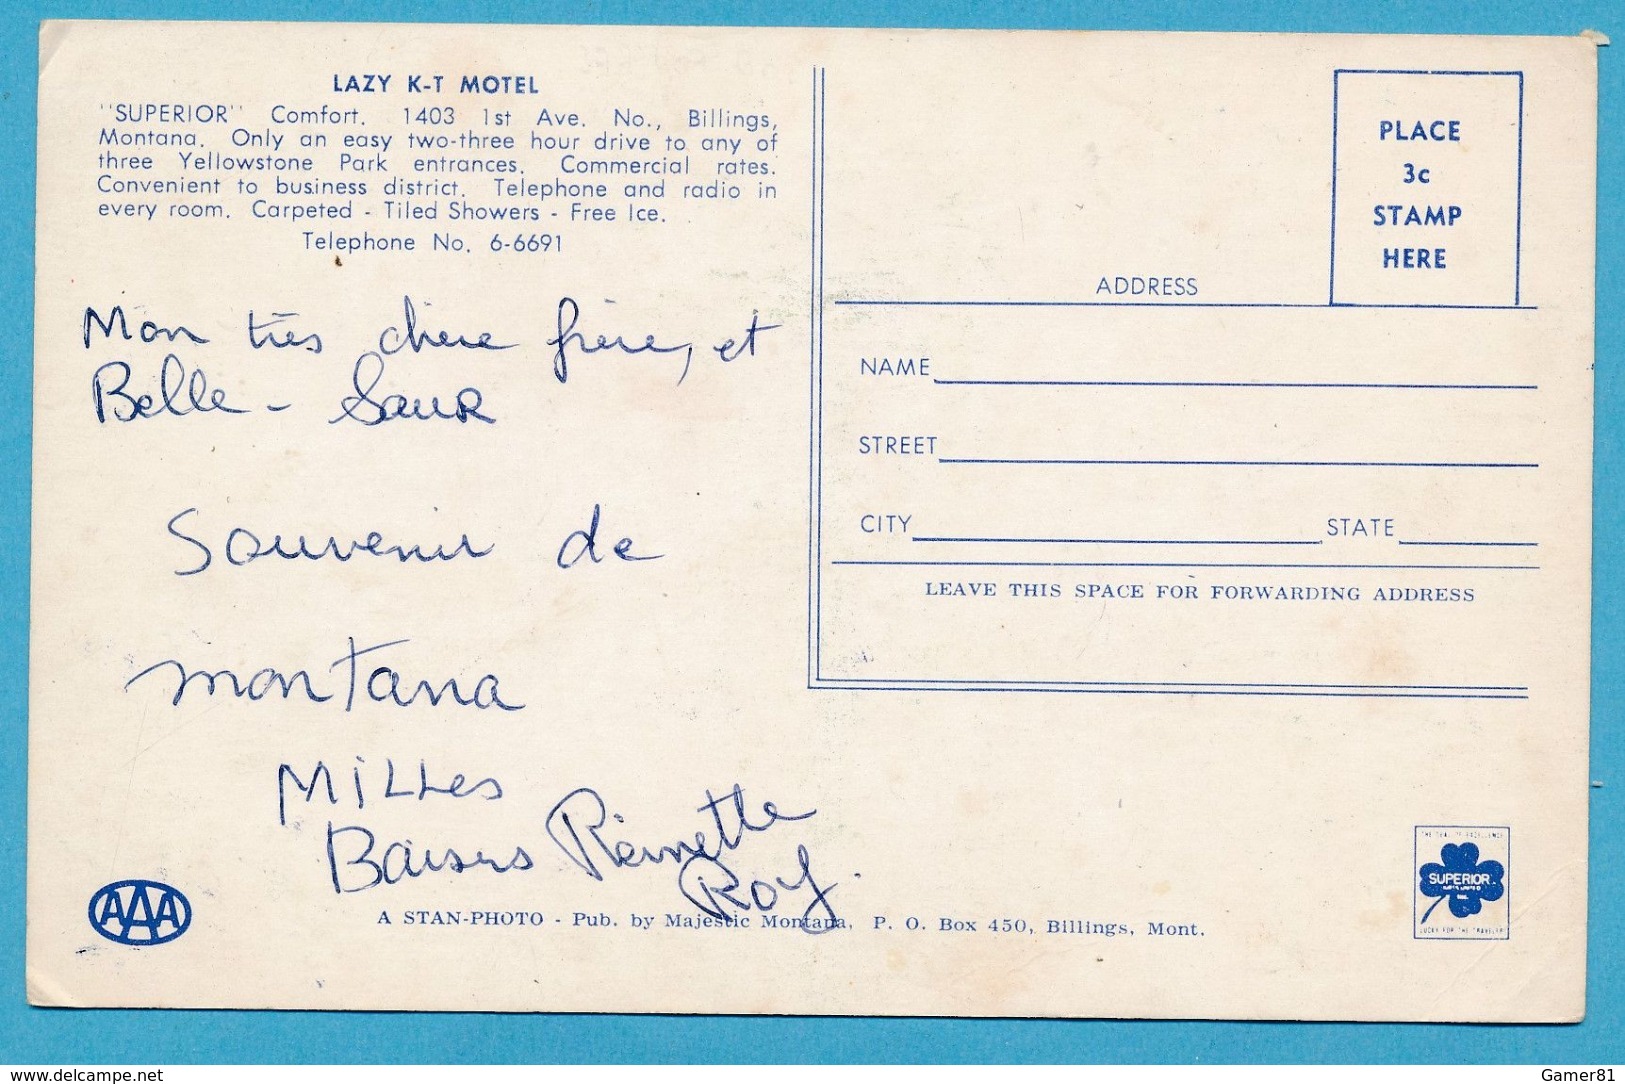 LAZY K-T MOTEL
"SUPERIOR" Comfort. 1403 1st Ave. No., Billings,
Montana. Only an easy two-three hour drive to any of
three Yellowstone Park entrances. Commercial rates.
Convenient to business district. Telephone and radio in
every room. Carpeted - Tiled Showers - Free Ice.
Telephone No. 6-6691
Mon très chère frère, et
Belle - Saur
Souvenir de
montana
Milles
Baisers
Roy.
PLACE
3c
STAMP
HERE
ADDRESS
NAME
STREET
CITY STATE
LEAVE THIS SPACE FOR FORWARDING ADDRESS
AAA
A STAN-PHOTO - Pub. by Majestic Montana, P. O. Box 450, Billings, Mont.
SUPERIOR
www.delcampe.net
Gamer81